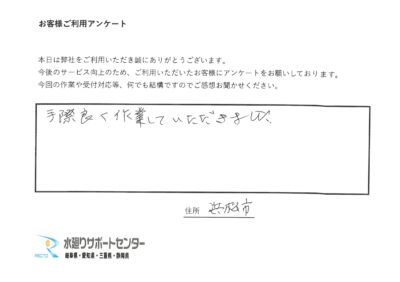 お客様ご利用アンケート
本日は弊社をご利用いただき誠にありがとうございます。
今後のサービス向上のため、ご利用いただいたお客様にアンケートをお願いしております。
今回の作業や受付対応等、何でも結構ですのでご感想お聞かせください。
手際良く作業していただきま
住所 浜松市
水廻りサポートセンター
岐阜県・愛知県・三重県・静岡県